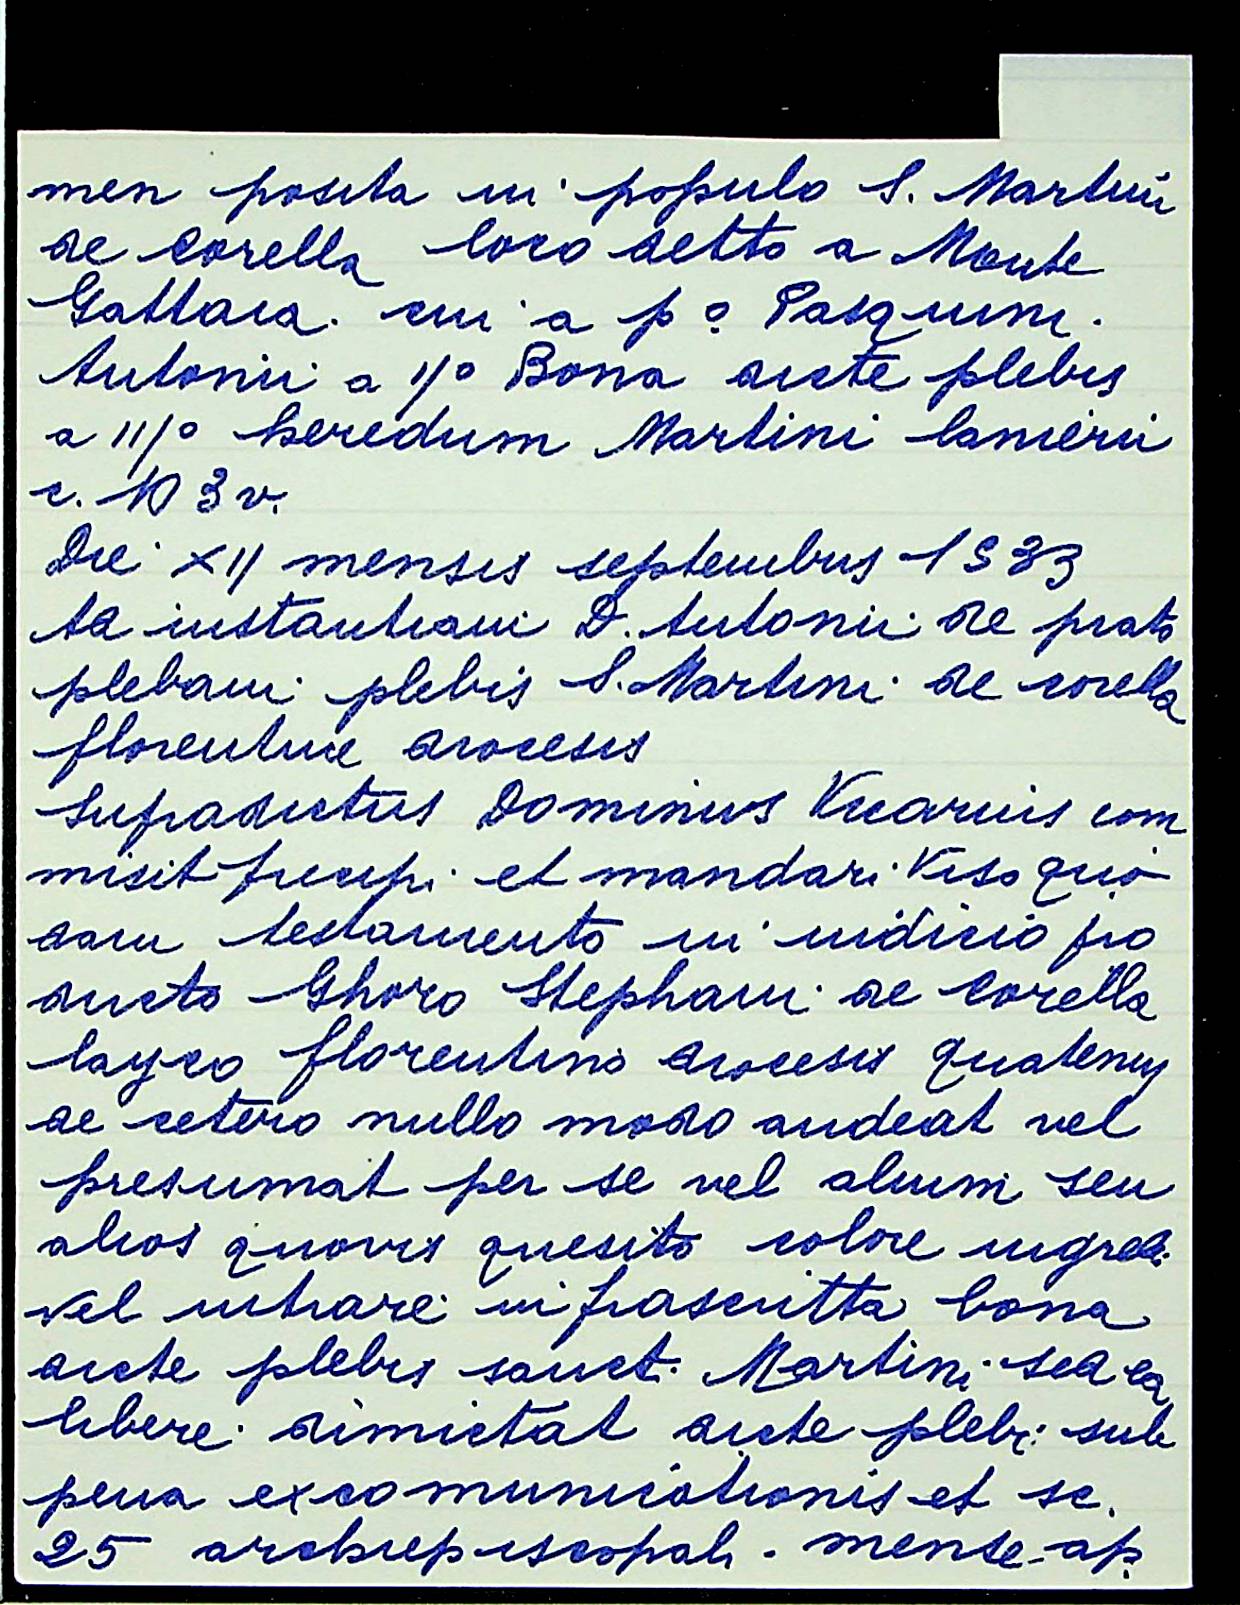 men posita in populo S. Martini
de Corella loco detto a Monte
Gattaia. cui a pº Pasquini
Antonii a IIº Bona dicte plebis
a IIIº heredum Martini Camerii
c. 103 v.
Die XII mensis septembris 1533
Ad instantiam D. Antonii de prato
plebani plebis S. Martini de corella
florentine diocesis
Supradictus Dominus Vicarius com
misit precipi et mandari Viso quo
dam testamento in iudicio pro
ducto Ghoro Stephani de Corella
layco florentino diocesis quatenus
de cetero nullo modo audeat vel
presumat per se vel alium seu
alios quovis quesito colore ingredi
vel intrare infrascritta bona
dicte plebis sancti Martini sed ea
libere dimictat dicte plebi sub
pena excomunicationis et sc.
25 archiepiscopali mense ap.